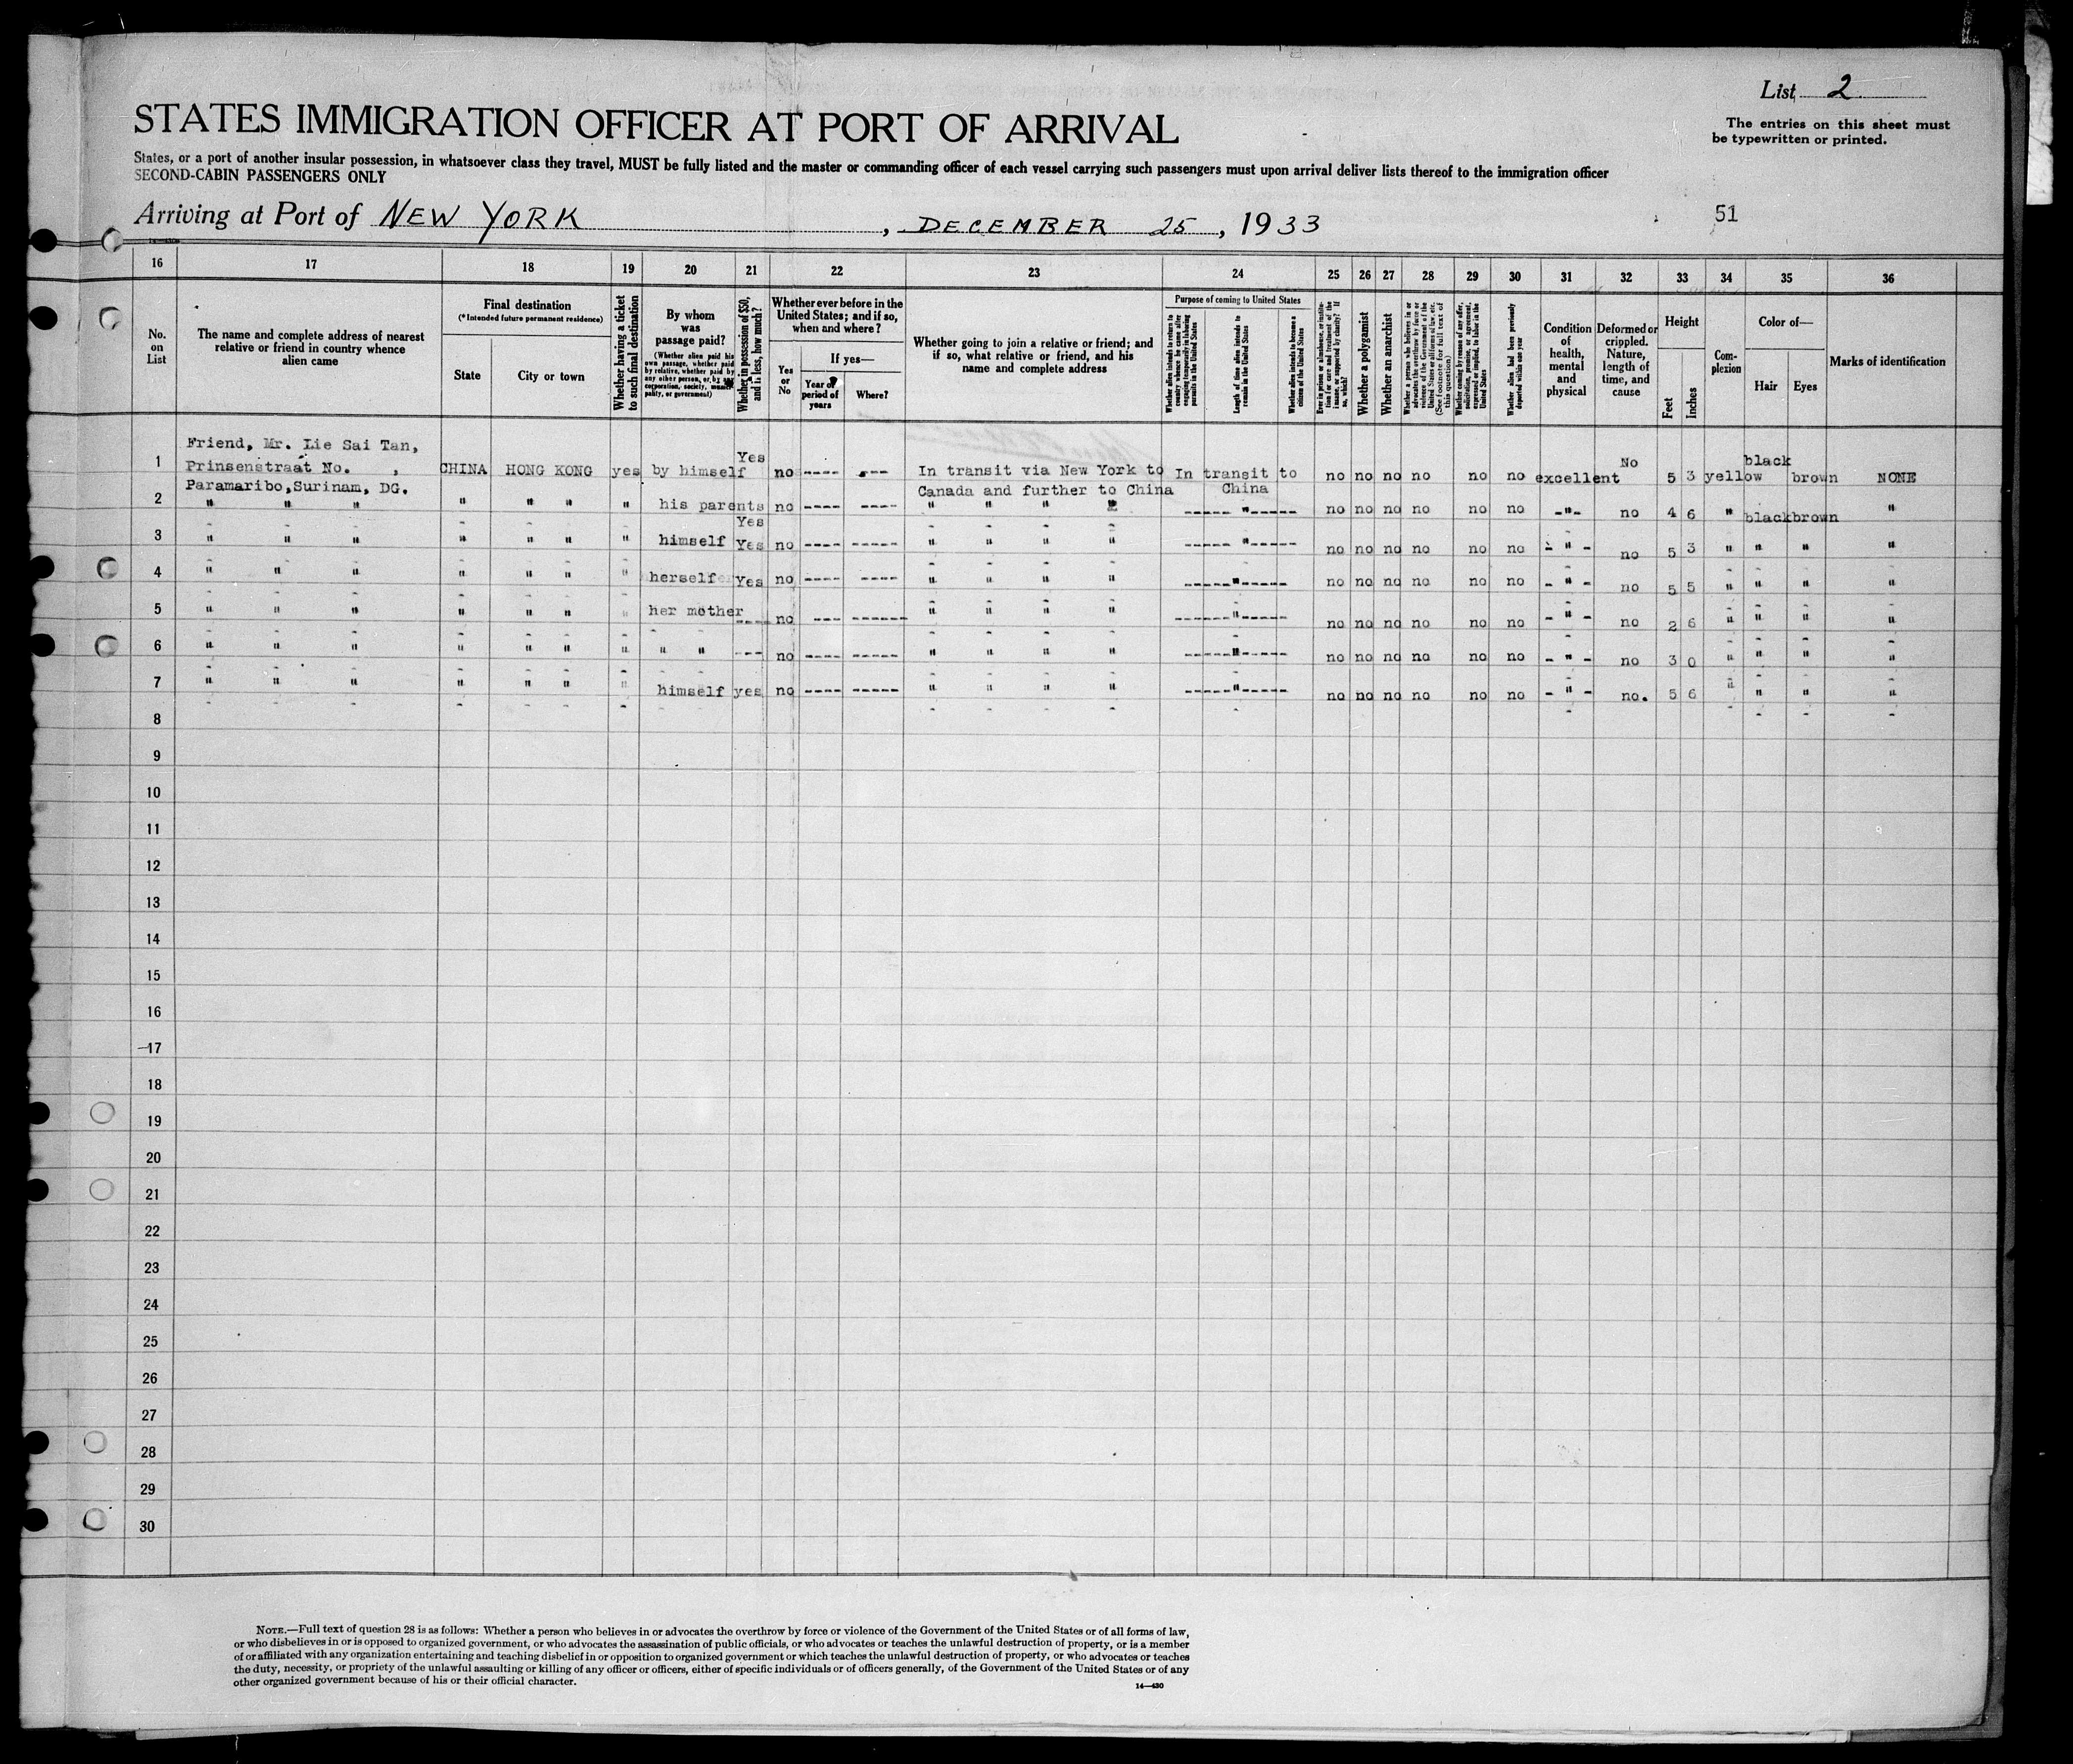 List 2
STATES IMMIGRATION OFFICER AT PORT OF ARRIVAL
The entries on this sheet must
be typewritten or printed.
States, or a port of another insular possession, in whatsoever class they travel, MUST be fully listed and the master or commanding officer of each vessel carrying such passengers must upon arrival deliver lists thereof to the immigration officer
SECOND-CABIN PASSENGERS ONLY
Arriving at Port of NEW YORK, DECEMBER 25, 1933
51
16 17 18 19 20 21 22 23 24 25 26 27 28 29 30 31 32 33 34 35 36
No.
on
List
The name and complete address of nearest
relative or friend in country whence
alien came
Final destination
(*Intended future permanent residence)
State
City or town
Whether having a ticket
to such final destination
By whom
was
passage paid?
(Whether alien paid his
own passage, whether paid
by relative, whether paid by
any other person, or by any
corporation, society, munici-
pality, or government)
Whether in possession of $50,
and if less, how much?
Whether ever before in the
United States; and if so,
when and where?
Yes
or
No
If yes—
Year or
period of
years
Where?
Whether going to join a relative or friend; and
if so, what relative or friend, and his
name and complete address
Purpose of coming to United States
Whether alien intends to return to
country whence he came after
engaging temporarily in laboring
pursuits in the United States
Length of time alien intends to
remain in the United States
Whether alien intends to become a
citizen of the United States
Ever in prison or almshouse, or institu-
tion for care and treatment of the
insane, or supported by charity? If
so, which?
Whether a polygamist
Whether an anarchist
Whether a person who believes in or
advocates the overthrow by force or
violence of the Government of the
United States or all forms of law, etc.
(See footnote for full text of
this question)
Whether coming by reason of any offer,
solicitation, promise, or agreement,
expressed or implied, to labor in the
United States
Whether alien had been previously
deported within one year
Condition
of
health,
mental
and
physical
Deformed or
crippled.
Nature,
length of
time, and
cause
Height
Feet
Inches
Com-
plexion
Color of—
Hair
Eyes
Marks of identification
Friend, Mr. Lie Sai Tan,
1 Prinsenstraat No. , CHINA HONG KONG yes by himself Yes no ---- ---- In transit via New York to In transit to no no no no no no excellent No 5 3 yellow black brown NONE
Paramaribo, Surinam, DG. Canada and further to China China
2 " " " " " " " his parents Yes no ---- ---- " " " " -----"----- no no no no no no -"- no 4 6 " black brown "
3 " " " " " " " himself Yes no ---- ----- " " " " -----"----- no no no no no no - " - no 5 3 " " " "
4 " " " " " " " herself Yes no ---- ----- " " " " -----"----- no no no no no no - " - no 5 5 " " " "
5 " " " " " " " her mother ---- no ---- ------ " " " " -----"----- no no no no no no - " - no 2 6 " " " "
6 " " " " " " " " " --- no ---- ----- " " " " -----"----- no no no no no no - " - no 3 0 " " " "
7 " " " " " " " himself yes no ---- ----- " " " " -----"----- no no no no no no - " - no. 5 6 " " " "
8
9
10
11
12
13
14
15
16
17
18
19
20
21
22
23
24
25
26
27
28
29
30
NOTE.—Full text of question 28 is as follows: Whether a person who believes in or advocates the overthrow by force or violence of the Government of the United States or of all forms of law,
or who disbelieves in or is opposed to organized government, or who advocates the assassination of public officials, or who advocates or teaches the unlawful destruction of property, or is a member
of or affiliated with any organization entertaining and teaching disbelief in or opposition to organized government or which teaches the unlawful destruction of property, or who advocates or teaches
the duty, necessity, or propriety of the unlawful assaulting or killing of any officer or officers, either of specific individuals or of officers generally, of the Government of the United States or of any
other organized government because of his or their official character.
14—430